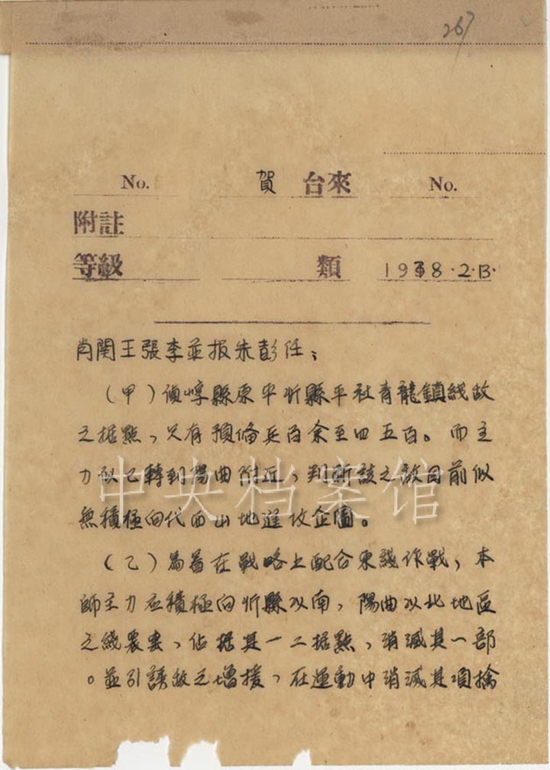 267
No. 賀 台來 No.
附註
等級 類 1938.2.13.
肖関王張李並报朱彭任；
（甲）偵崞縣原平忻縣平社青龍鎮綫敌
之据點，只有預備兵百余至四五百。而主
力似已轉到陽曲附近，判断該之敌目前似
無積極向代西山地進攻企圖。
（乙）為着在戰略上配合東綫作戰，本
師主力应積極向忻縣以南，陽曲以北地區
之綫襲击，佔据其一二据點，消滅其一部
。並引誘敌之增援，在運動中消滅其項擒
中央档案馆